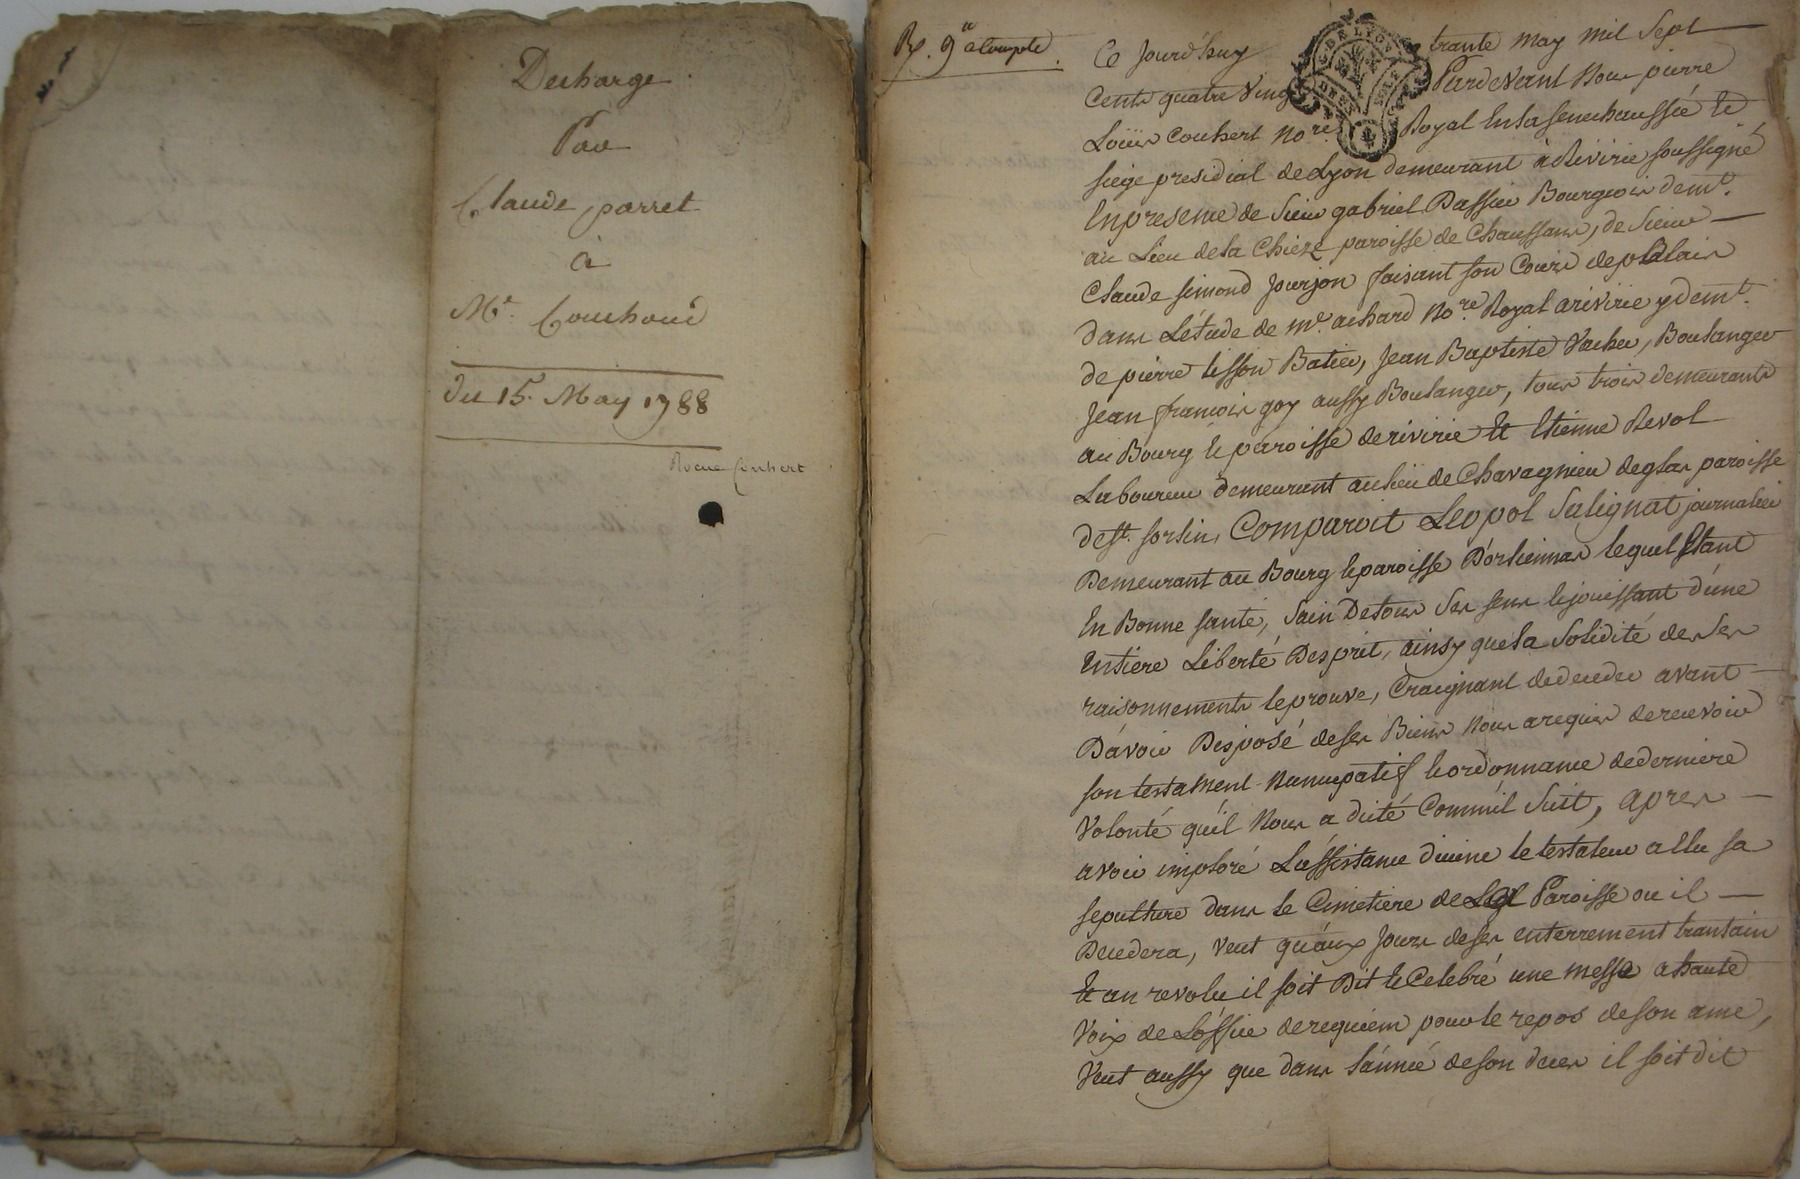 Decharge
Par
Claude parret
à
Mr. Couhard
du 15. May 1788
Couhert
R. 9 a Compte
Ce Jourd'huy trante may mil sept
Cents quatre Ving Pardevant Nous pierre
Loüis Couhert Nore. Royal En la senechaussée Et
siege presidial de Lyon demeurant à Rivirie soussigné
En presence de Sieur gabriel Dassier Bourgeois demt.
au Lieu de la Chieze paroisse de Chaussans, de Sieur
Claude simond Jourjon faisant son Cours de palais
dans L'étude de me. achard Nore. Royal a rivirie y demt.
de pierre tisson Batier, Jean Baptiste Vacher, Boulanger
Jean francois goy aussy Boulanger, tous trois demeurants
au Bourg Et paroisse de rivirie Et Etienne Revol
Laboureur demeurant au lieu de Chavagnieu de glas paroisse
de St. sorlin, Comparoit Leopol Salignat journalier
Demeurant au Bourg Et paroisse D'orliennas lequel Etant
En Bonne santé, Sain De tous Ses sens Et jouissant d'une
Entiere Liberté D'esprit, ainsy que la Solidité de Ses
raisonnements le prouve, Craignant de deceder avant
D'avoir Disposé de ses Biens Nous a requis de recevoir
son testament Nuncupatif Et ordonnance de derniere
Volonté qu'il Nous a dicté Comm'il Suit, apres
avoir imploré L'assistance divine le testateur a Elu sa
sepulture dans le Cimetiere de La Paroisse ou il
Decedera, veut qu'aux Jours de ses enterrement trantain
Et an revolu il soit Dit Et Celebré une messe a haute
Voix de L'office de requiem pour le repos de son ame,
Veut aussy que dans L'année de son deces il soit dit